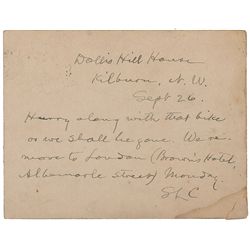 Dollis Hill House
Kilburn, N. W.
Sept 26.
Hurry along with that bike
or we shall be gone. We re-
move to London (Brown's Hotel,
Albemarle street) Monday.
SLC